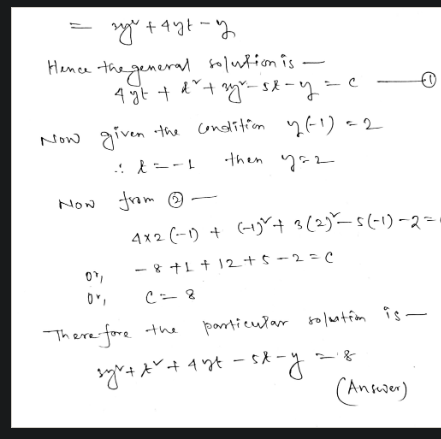 = 3y² + 4yt - y
Hence the general solution is —
4yt + t² + 3y² - 5t - y = c —— ①
Now given the condition y(-1) = 2
∴ t = -1 then y = 2
Now from ② —
4×2(-1) + (-1)² + 3(2)² - 5(-1) - 2 =
or, -8 + 1 + 12 + 5 - 2 = c
or, c = 8
Therefore the particular solution is —
3y² + t² + 4yt - 5t - y = 8
(Answer)